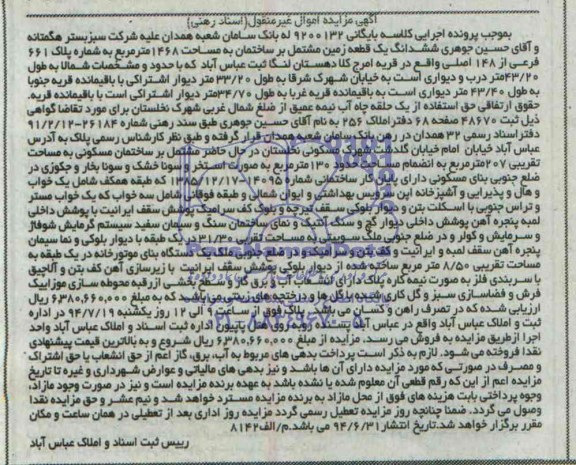 آگهی مزایده اموال غیرمنقول(اسناد رهنی)
بموجب پرونده اجرایی کلاسه بایگانی ۹۲۰۰۱۳۲ له بانک سامان شعبه همدان علیه شرکت سبزبستر هگمتانه
و آقای حسین جوهری ششدانگ یک قطعه زمین مشتمل بر ساختمان به مساحت ۱۴۶۸مترمربع به شماره پلاک ۶۶۱
فرعی از ۱۴۸ اصلی واقع در قریه امرج کلا دهستان لنگا ثبت عباس آباد که با حدود و مشخصات شمالا به طول
۴۳/۲۰متر درب و دیواری است به خیابان شهرک شرقا به طول ۳۳/۲۰ متر دیوار اشتراکی با باقیمانده قریه جنوبا
به طول ۴۳/۴۰ متر دیواری است به باقیمانده قریه غربا به طول ۳۴/۷۰متر دیوار اشتراکی است با باقیمانده قریه.
حقوق ارتفاقی حق استفاده از یک حلقه چاه آب نیمه عمیق از ضلع شمال غربی شهرک نخلستان برای مورد تقاضا گواهی
ذیل ثبت ۴۸۶۷۰ صفحه ۶۸ دفتر املاک ۲۵۶ به نام آقای حسین جوهری طبق سند رهنی شماره ۲۶۱۸۴-۹۱/۲/۱۲
دفتر اسناد رسمی ۳۲ همدان در رهن بانک سامان شعبه همدان قرار گرفته و طبق نظر کارشناس رسمی پلاک به آدرس
عباس آباد خیابان امام خیابان گلدشت شهرک مسکونی نخلستان در حال حاضر مشتمل بر ساختمان مسکونی به مساحت
تقریبی ۲۰۷مترمربع به انضمام مساحت حدود ۱۳۰مترمربع به صورت استخر و سونا خشک و سونا بخار و جکوزی در
ضلع جنوبی بنای مسکونی دارای پایان کار ساختمانی شماره ۱۴۰۹۵-۱۳۸۵/۱۲/۱۷ که طبقه همکف شامل یک خواب
و هال و پذیرایی و آشپزخانه اپن سرویس بهداشتی و ایوان شمالی و طبقه فوقانی شامل سه خواب که یک خواب مستر
و تراس جنوبی با اسکلت بتن و دیوار بلوکی سقف تیرچه و بلوک کف سرامیک پوشش سقف ایرانیت با پوشش داخلی
لمبه پنجره آهن پوشش داخلی دیوار گچ و سنگ آنتیک و نمای ساختمان سنگ و سیمان سفید سیستم گرمایش شوفاژ
و سرمایش و کولر و در ضلع جنوبی ملک سوییتی به مساحت تقریبی ۲۱/۳۰ یک طبقه با دیوار بلوکی و نما سیمان
پنجره آهن سقف لمبه و ایرانیت و کف بتن و سرامیک و در ضلع جنوبی ملک یک دستگاه بنای موتورخانه در یک طبقه به
مساحت تقریبی ۸/۵۰ متر مربع ساخته شده از دیوار بلوکی پوشش سقف ایرانیت با زیرسازی آهن کف بتن و آلاچیق
با سربندی فلز به صورت نیمه کاره پلاک دارای انشعاب آب و برق گاز و سطح بخشی از رقبه محوطه سازی موزاییک
فرش و فضاسازی سبز و گل کاری شده با گل ها و درختچه های زینتی می باشد که به مبلغ ۶۳۸۰,۶۶۰,۰۰۰ ریال
ارزیابی شده که در تصرف راهن و کسان می باشد. پلاک فوق از ساعت ۹ الی ۱۲ روز یکشنبه ۹۴/۷/۱۹ در اداره
ثبت و املاک عباس آباد واقع در عباس آباد روبروی هتل بابیون اداره ثبت اسناد و املاک عباس آباد واحد
اجرا ازطریق مزایده به فروش می رسد. مزایده از مبلغ ۶۳۸۰,۶۶۰,۰۰۰ ریال شروع و به بالاترین قیمت پیشنهادی
نقدا فروخته می شود. لازم به ذکر است پرداخت بدهی های مربوط به آب، برق، گاز اعم از حق انشعاب یا حق اشتراک
و مصرف در صورتی که مورد مزایده دارای آن ها باشد و نیز بدهی های مالیاتی و عوارض شهرداری و غیره تا تاریخ
مزایده اعم از این که رقم قطعی آن معلوم شده یا نشده باشد به عهده برنده مزایده است و نیز در صورت وجود مازاد،
وجوه پرداختی بابت هزینه های فوق از محل مازاد به برنده مزایده مسترد خواهد شد و نیم عشر و حق مزایده نقدا
وصول می گردد. ضمنا چنانچه روز مزایده تعطیل رسمی گردد مزایده روز اداری بعد از تعطیلی در همان ساعت و مکان
مقرر برگزار خواهد شد.تاریخ انتشار ۹۴/۶/۳۱ می باشد.م/الف۸۱۴۲
رییس ثبت اسناد و املاک عباس آباد